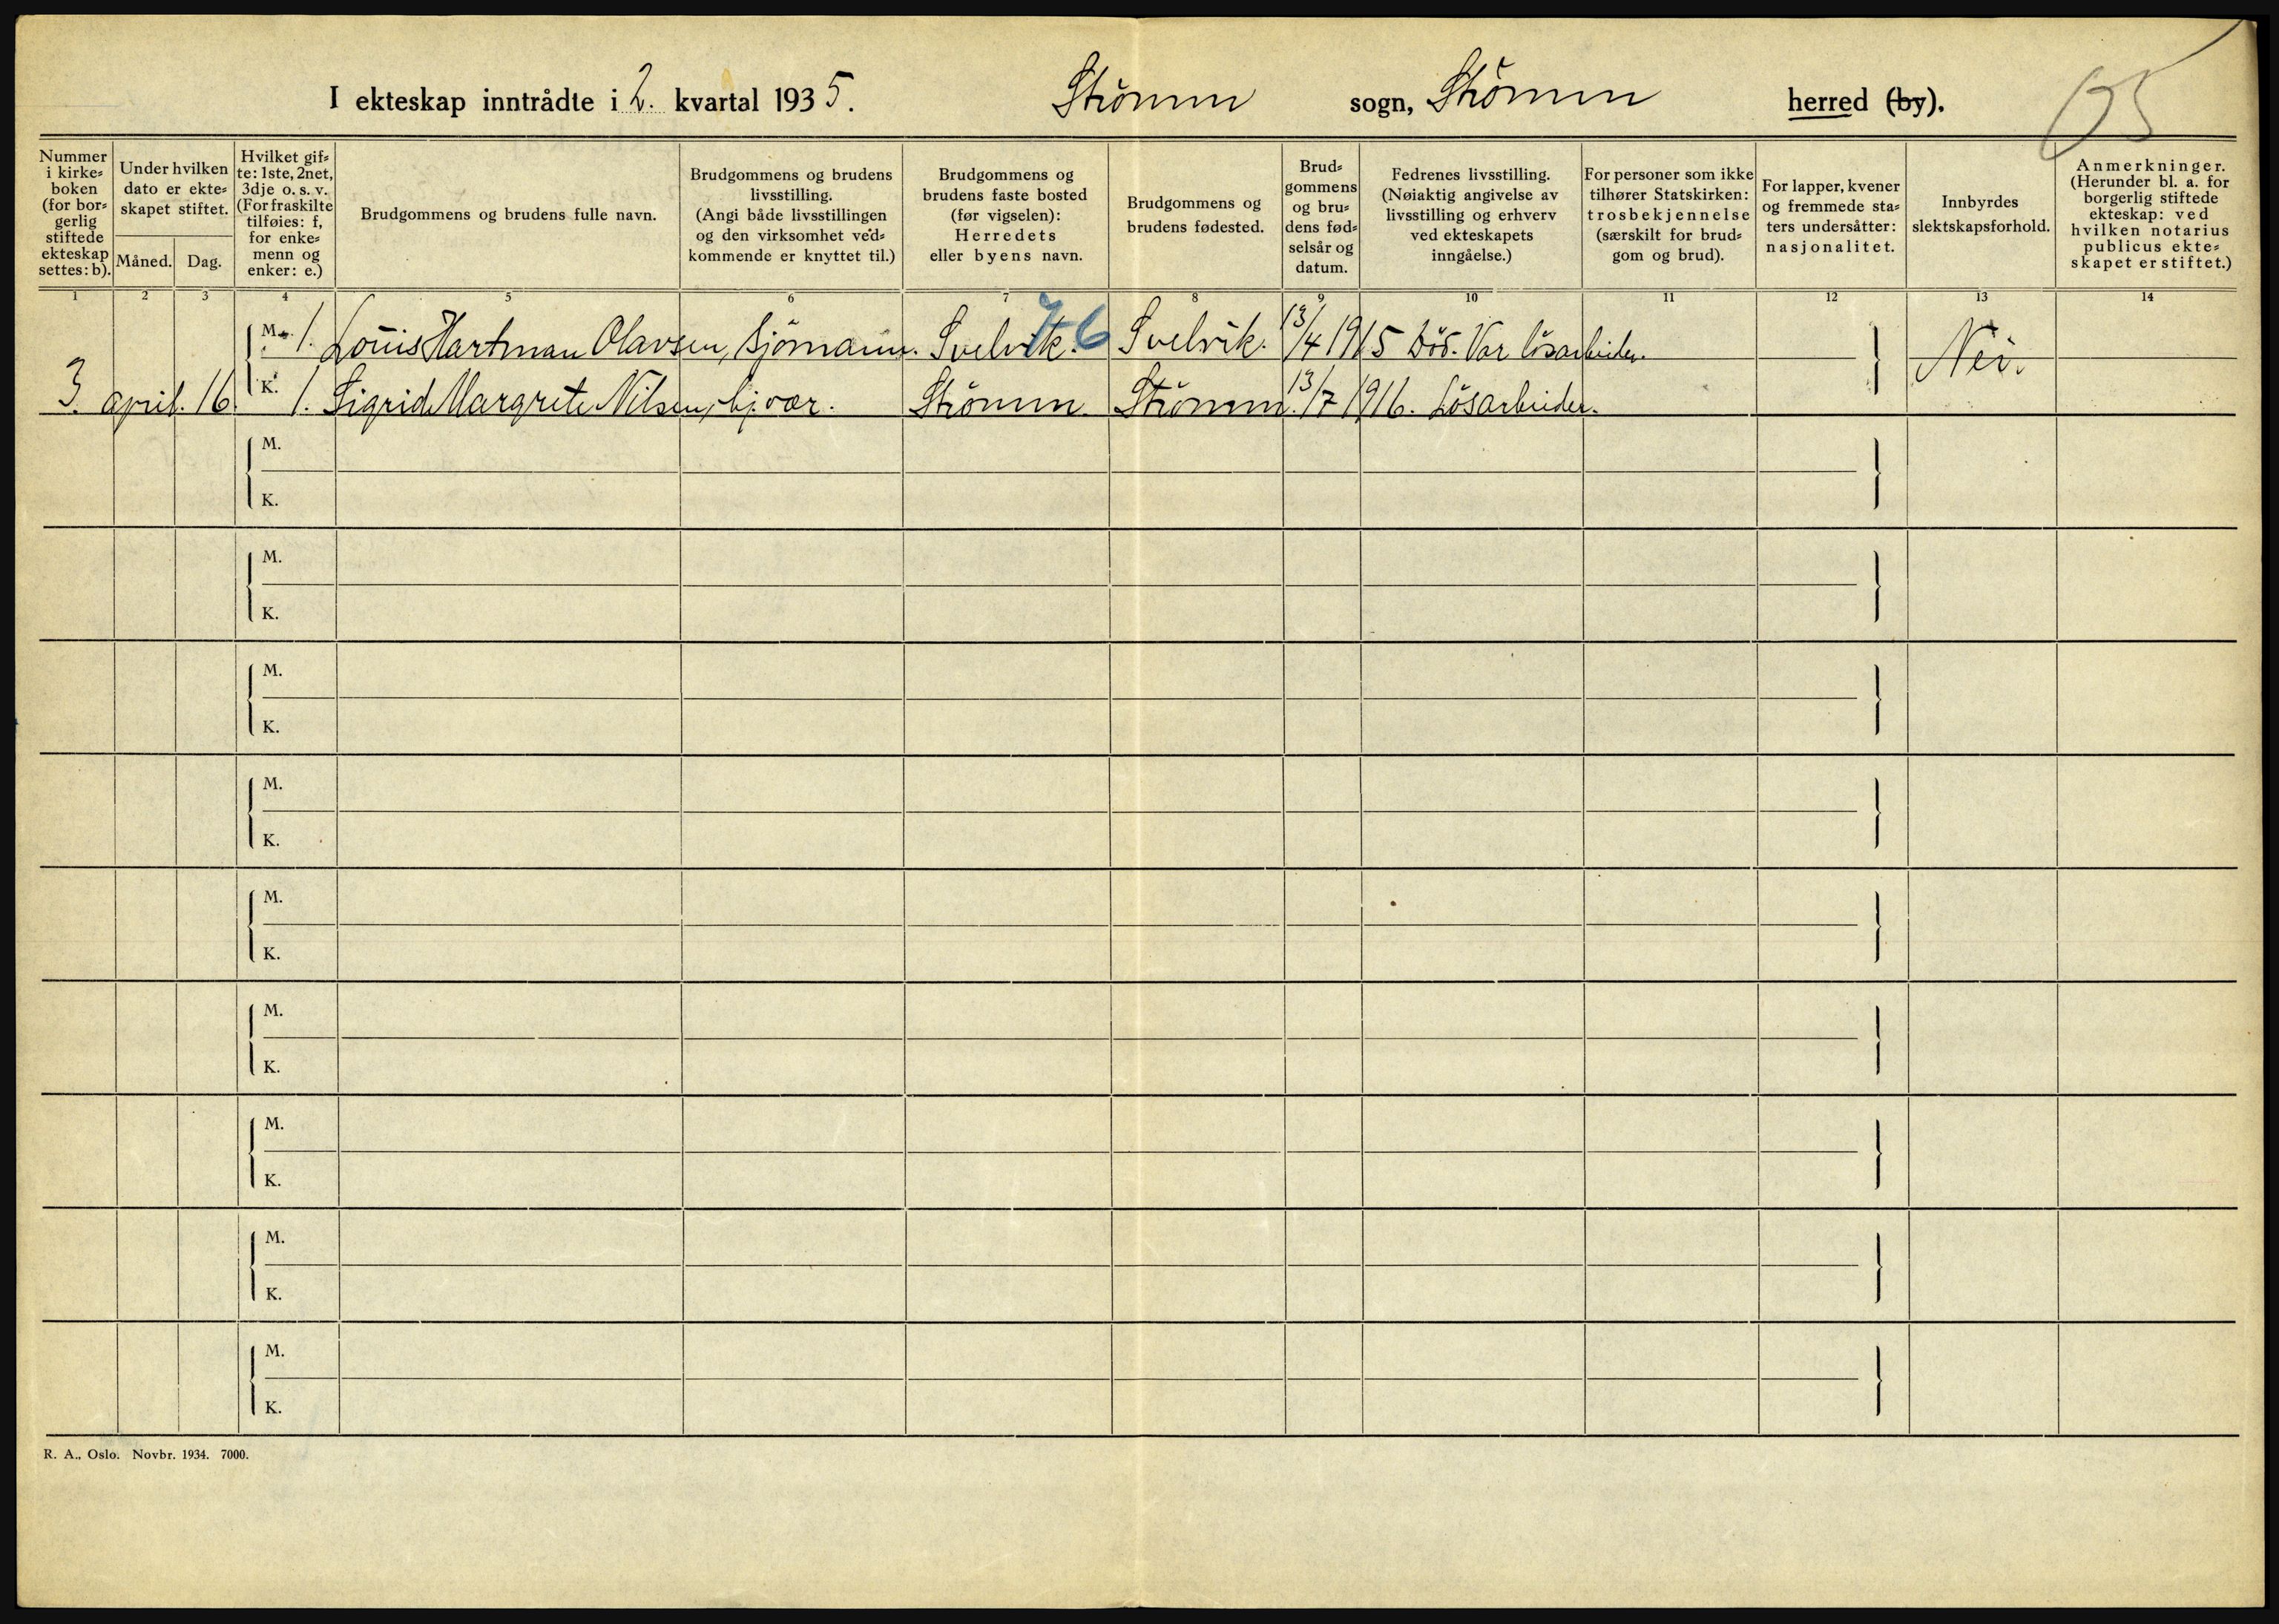 I ekteskap inntrådte i 2. kvartal 1935. Strömm sogn, Strömm herred (by).
Nummer i kirke=boken (for bor=gerlig stiftede ekteskap settes: b).
Under hvilken dato er ekte=skapet stiftet.
Måned. Dag.
Hvilket gif=te: 1ste, 2net, 3dje o. s. v. (For fraskilte tilføies: f, for enke=menn og enker: e.)
Brudgommens og brudens fulle navn.
Brudgommens og brudens livsstilling. (Angi både livsstillingen og den virksomhet ved=kommende er knyttet til.)
Brudgommens og brudens faste bosted (før vigselen): Herredets eller byens navn.
Brudgommens og brudens fødested.
Brud=gommens og bru=dens fød=selsår og datum.
Fedrenes livsstilling. (Nøiaktig angivelse av livsstilling og erhverv ved ekteskapets inngåelse.)
For personer som ikke tilhører Statskirken: trosbekjennelse (særskilt for brud=gom og brud).
For lapper, kvener og fremmede sta=ters undersåtter: nasjonalitet.
Innbyrdes slektskapsforhold.
Anmerkninger. (Herunder bl. a. for borgerlig stiftede ekteskap: ved hvilken notarius publicus ekte=skapet er stiftet.)
1 2 3 4 5 6 7 8 9 10 11 12 13 14
M. 1. Louis Hartman Olavsen, Sjömann. Svelvik. 76 Svelvik. 13/4 1915 Död. Var lösarbeider. Nei.
3. april. 16. K. 1. Sigrid Margrete Nilsen, hj.vær. Strömm. Strömm. 13/7 1916. Lösarbeider.
M.
K.
M.
K.
M.
K.
M.
K.
M.
K.
M.
K.
M.
K.
M.
K.
M.
K.
R. A., Oslo. Novbr. 1934. 7000.